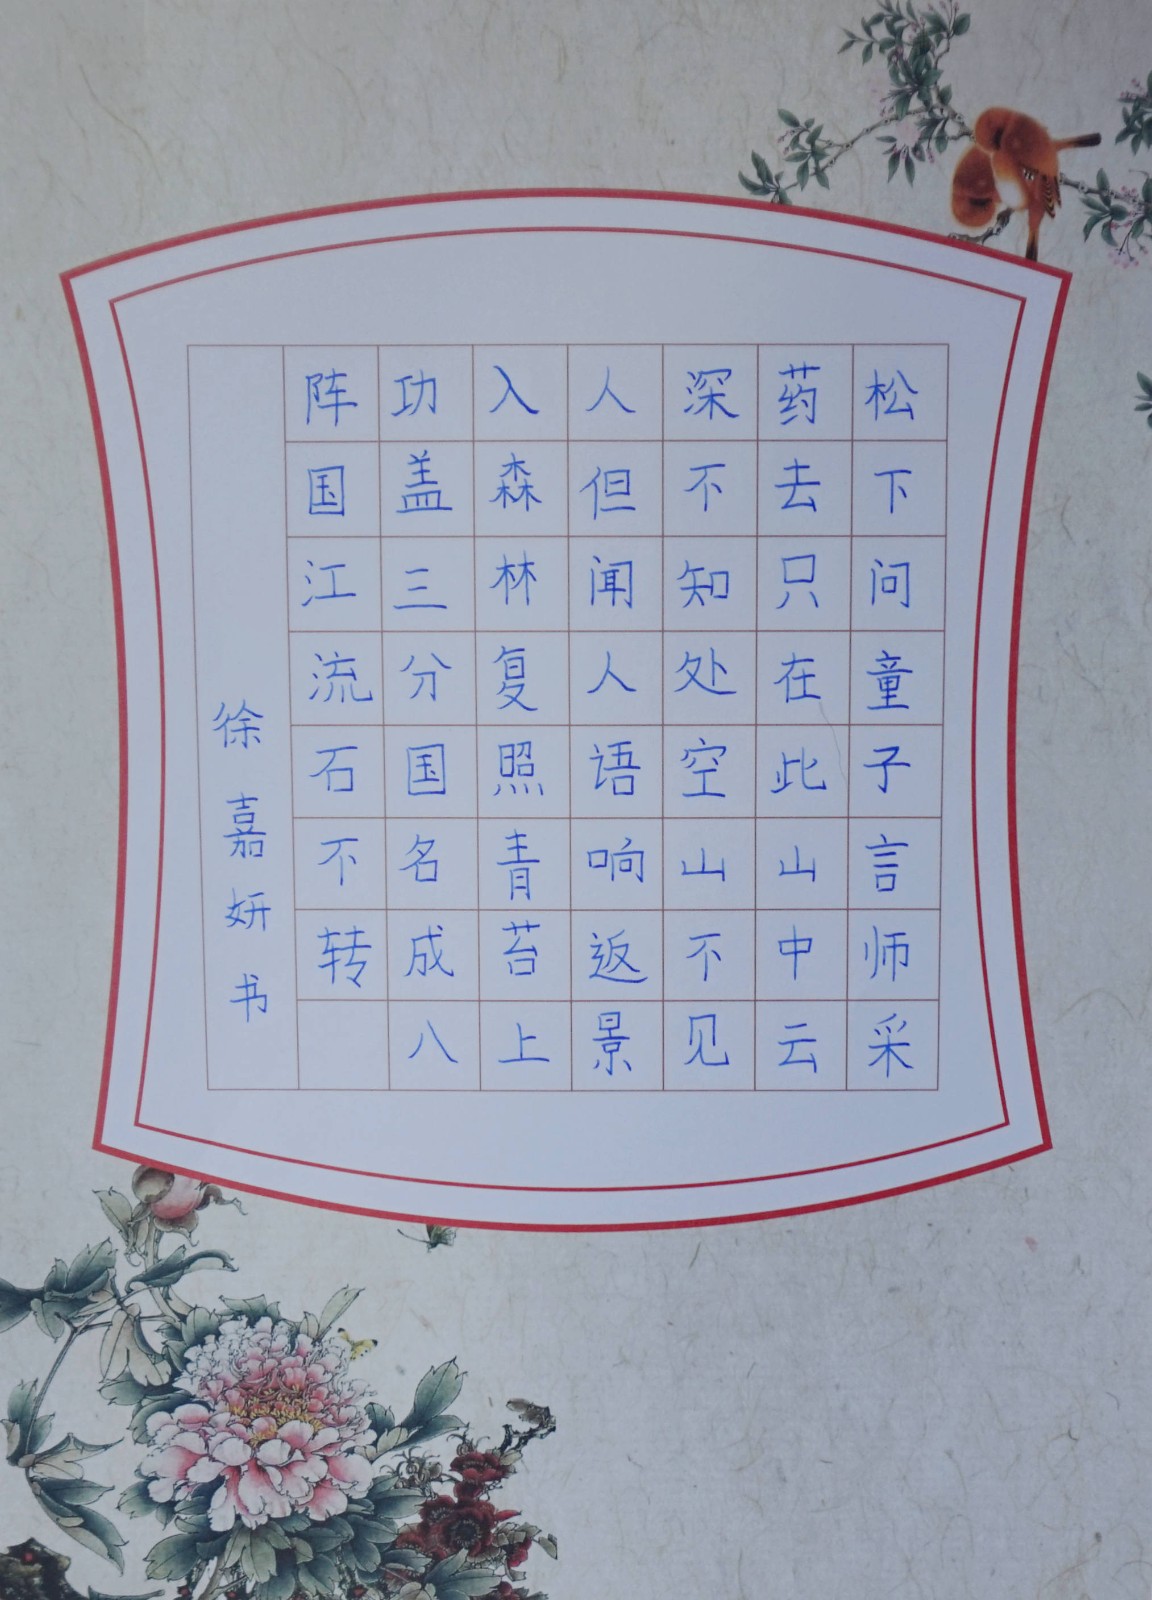 松下问童子言师采
药去只在此山中云
深不知处空山不见
人但闻人语响返景
入森林复照青苔上
功盖三分国名成八
阵国江流石不转
徐嘉妍书